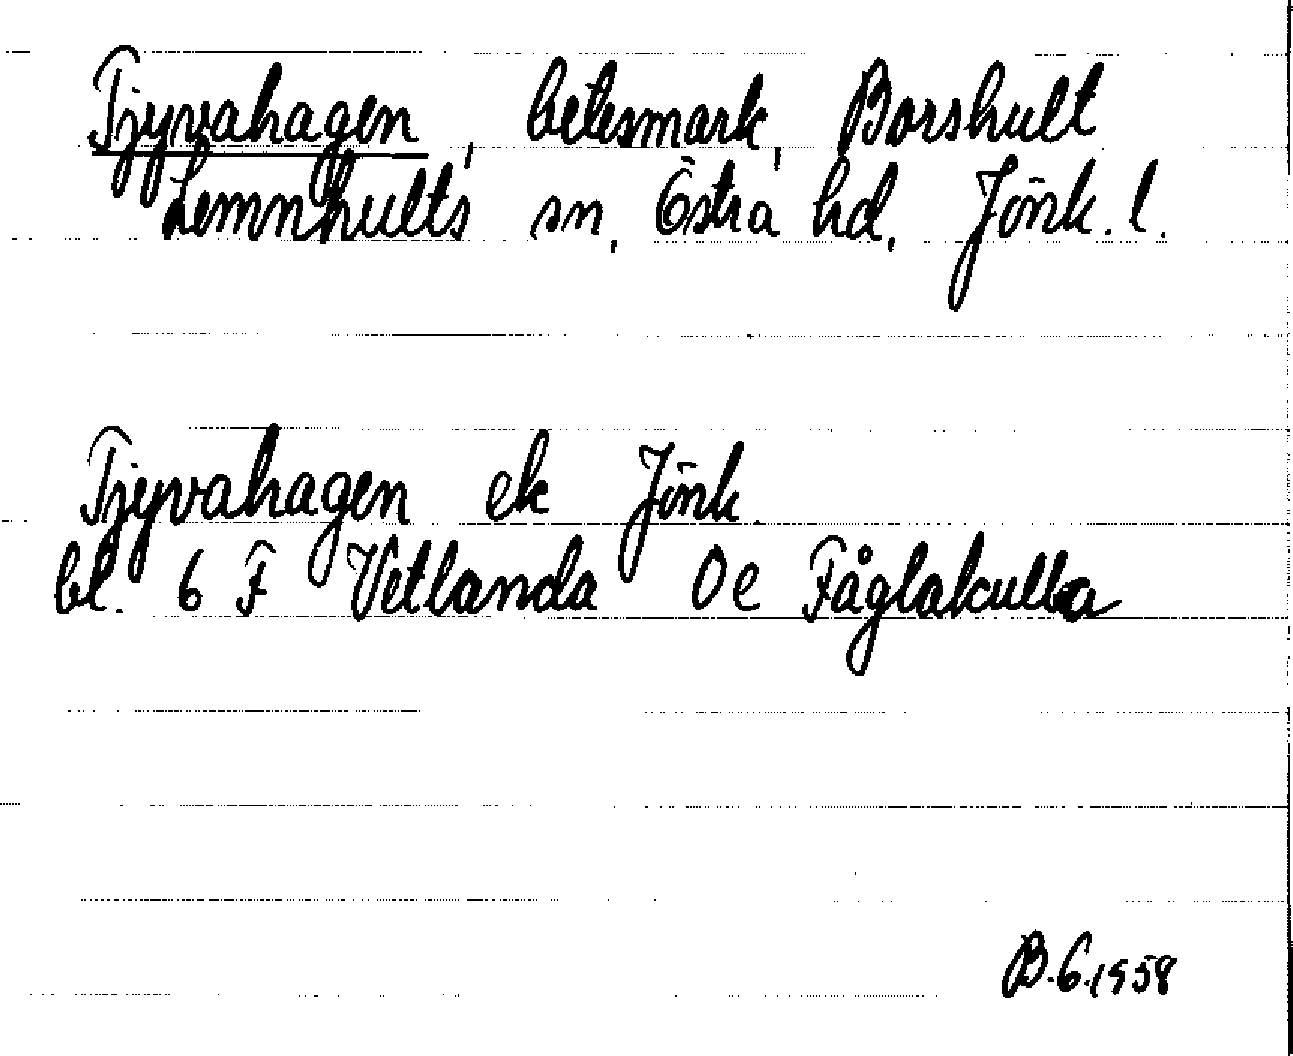 Tjyvahagen, betesmark, Borshult
Lemnhults sn, Östra hd, Jönk. l.
Tjyvahagen ek Jönk.
bl. 6 F Vetlanda 0e Fåglakulla
B.G. 1958